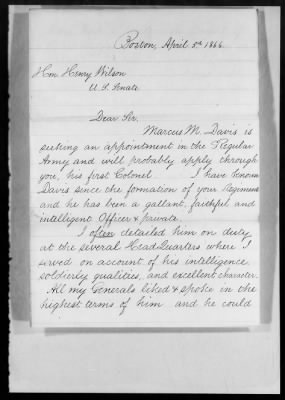 Boston, April 5th 1866.
Hon. Henry Wilson
U. S. Senate.
Dear Sir.
Marcus M. Davis is
seeking an appointment in the Regular
Army and will probably apply through
you, his first Colonel. I have known
Davis since the formation of your Regiment
and he has been a gallant, faithful and
intelligent Officer & private.
I often detailed him on duty
at the several Head Quarters where I
served on account of his intelligence
soldierly qualities, and excellent character.
All my Generals liked & spoke in the
highest terms of him and he could